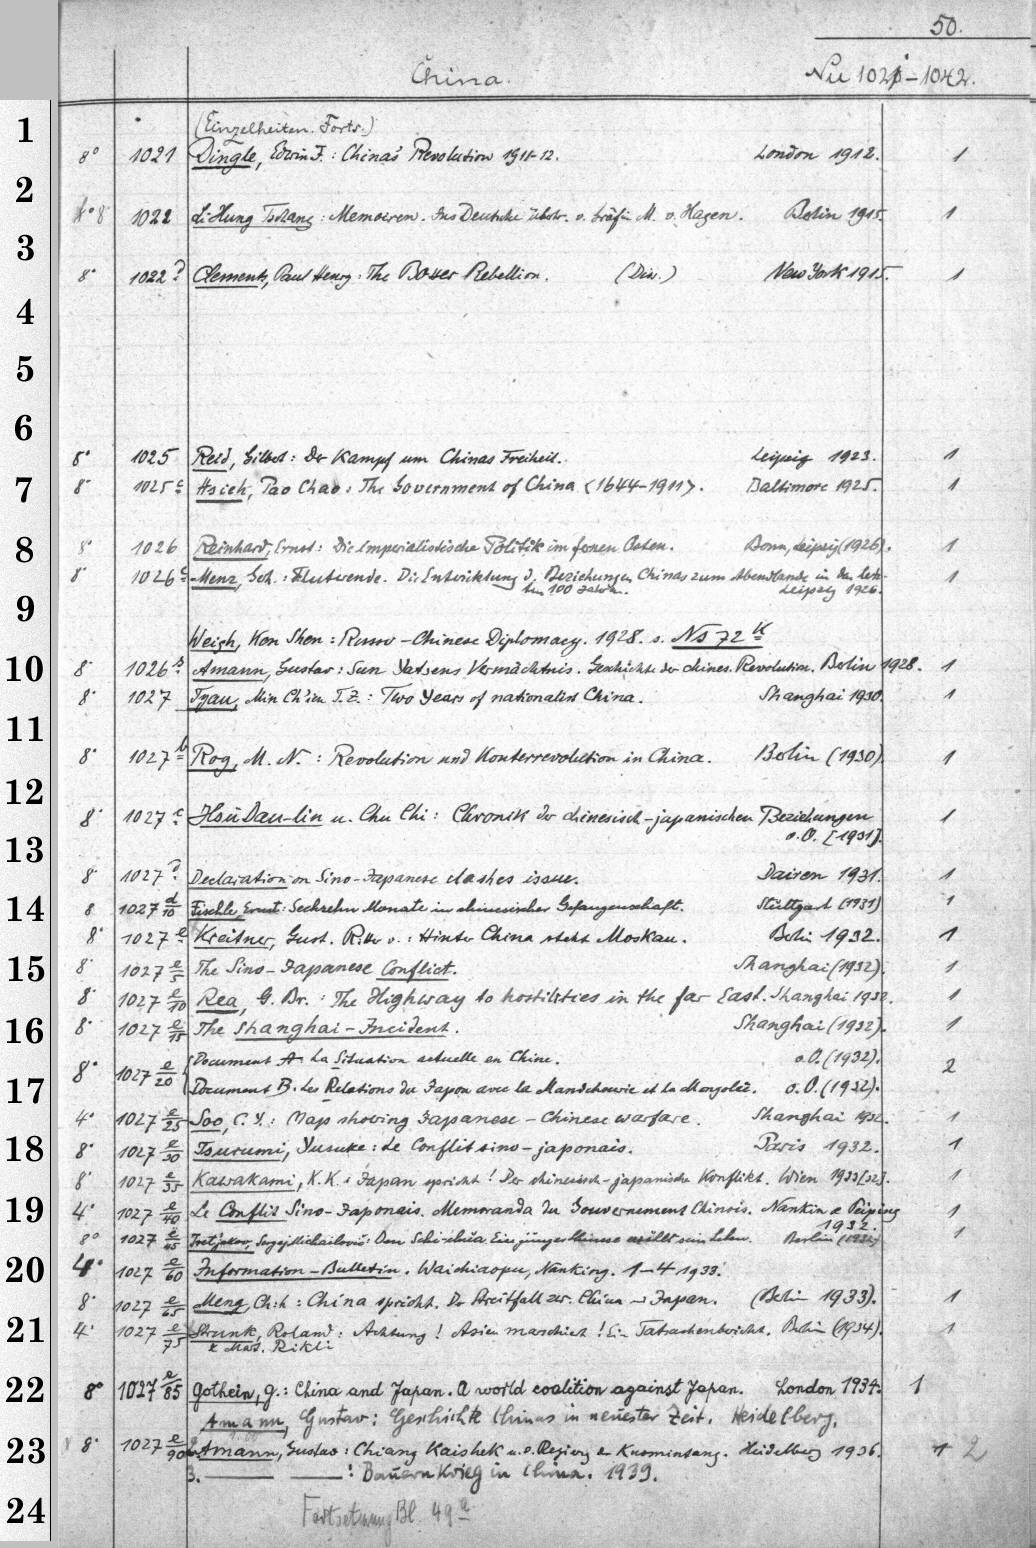 50.
China. Nu 1021-1042.
1
(Einzelheiten. Forts.)
8° 1021 Dingle, Edwin F.: China's Revolution 1911-12. London 1912. 1
2
8° 1022 Li Hung Tschang: Memoiren. Ins Deutsche übstr. v. Gräfin M. v. Hagen. Berlin 1915. 1
3
8° 1022 Clements, Paul Henry: The Boxer Rebellion. (Diss.) New York 1915. 1
4
5
6
8° 1025 Reid, Gilbert: Der Kampf um Chinas Freiheit. Leipzig 1923. 1
7
8° 1025 c Hsieh, Pao Chao: The Government of China <1644-1911>. Baltimore 1925. 1
8
8° 1026 Reinhard, Ernst: Die Imperialistische Politik im fernen Osten. Bonn, Leipzig (1926). 1
8° 1026 Menz, Gerh.: Flutwende. Die Entwicklung d. Beziehungen Chinas zum Abendlande in den letz-
ten 100 Jahren. Leipzig 1926. 1
9
Weigh, Ken Shen: Russo-Chinese Diplomacy. 1928. s. Ns 72 k
10
8° 1026 Amann, Gustav: Sun Yatsens Vermächtnis. Geschichte der chines. Revolution. Berlin 1928. 1
8° 1027 Tyau, Min Ch'ien T. Z.: Two Years of nationalist China. Shanghai 1930. 1
11
8° 1027 b Roy, M. N.: Revolution und Konterrevolution in China. Berlin (1930). 1
12
8° 1027 c Hsü Dau-lin u. Chu Chi: Chronik der chinesisch-japanischen Beziehungen
13
o.O. [1931]. 1
8° 1027 Declaration on Sino-Japanese clashes issue. Dairen 1931. 1
14
8 1027 d/10 Fischle, Ernst: Sechzehn Monate in chinesischer Gefangenschaft. Stuttgart (1931) 1
8° 1027 e Kreitner, Gust. Ritter v.: Hinter China steht Moskau. Berlin 1932. 1
15
8° 1027 e/5 The Sino-Japanese Conflict. Shanghai (1932). 1
8° 1027 e/10 Rea, G. Br.: The Highway to hostilities in the far East. Shanghai 1932. 1
16
8° 1027 e/15 The Shanghai-Incident. Shanghai (1932). 1
8° 1027 e/20 Document A. La Situation actuelle en Chine. o.O. (1932). 2
17
Document B. Les Relations du Japon avec la Mandchourie et la Mongolie. o.O. (1932).
4° 1027 e/25 Soo, C. Y.: Map showing Japanese-Chinese warfare. Shanghai 1932. 1
18
8° 1027 e/30 Tsurumi, Yusuke: Le Conflit sino-japonais. Paris 1932. 1
8° 1027 e/35 Kawakami, K. K.: Japan spricht! Der chinesisch-japanische Konflikt. Wien 1933[32]. 1
19
4° 1027 e/40 Le Conflit Sino-Japonais. Memoranda du Gouvernement Chinois. Nankin & Peiping
1932. 1
8° 1027 e/45 Tretjakov, Sergej Michailovič: Den Schi-Chua. Ein junger Chinese erzählt sein Leben. Berlin (1932) 1
20
4° 1027 e/60 Information-Bulletin. Waichiaopu, Nanking. 1-4 1933.
8° 1027 e/65 Meng, Chih: China spricht. Der Streitfall zw. China u. Japan. (Berlin 1933). 1
21
4° 1027 e/75 Strunk, Roland: Achtung! Asien marschiert! Ein Tatsachenbericht. Berlin (1934). 1
& Mart. Rikli
22
8° 1027 e/85 Gothein, G.: China and Japan. A world coalition against Japan. London 1934. 1
Amann, Gustav: Geschichte Chinas in neuester Zeit. Heidelberg.
23
8° 1027 e/90 Amann, Gustav: Chiang Kaishek u. d. Regierg der Kuomintang. Heidelberg 1936. 1 2
3. : Bauernkrieg in China. 1939.
24
Fortsetzung Bl. 49 a